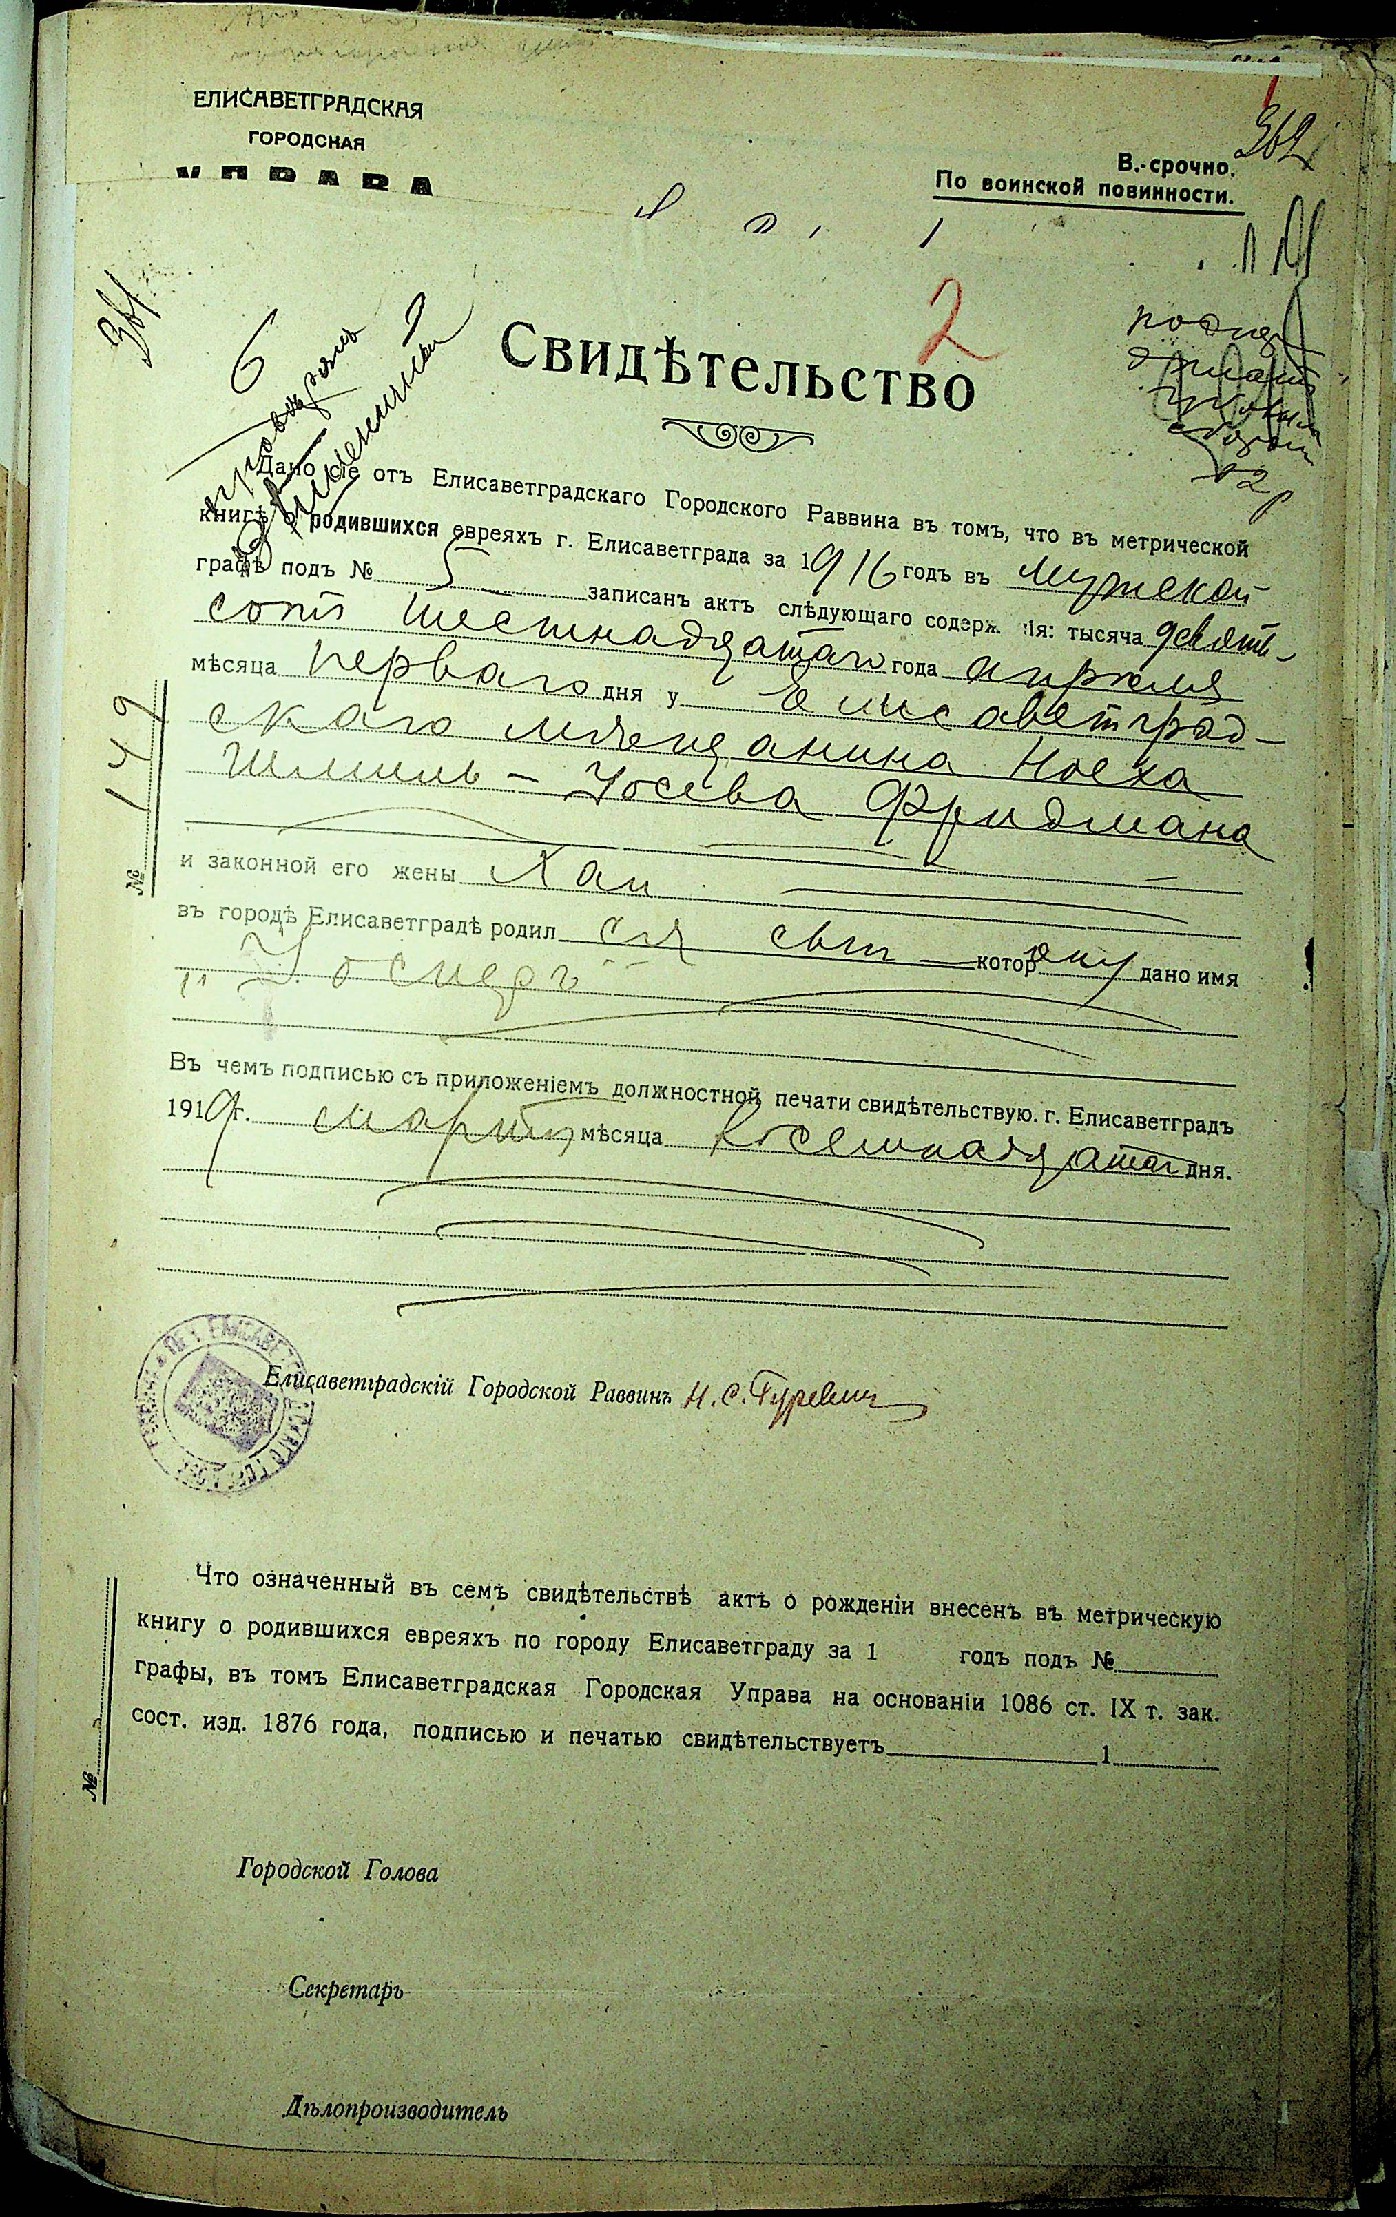 ЕЛИСАВЕТГРАДСКАЯ
ГОРОДСКАЯ
УПРАВА
362
В.-срочно.
По воинской повинности.
2
6
Свидѣтельство
Дано сіе отъ Елисаветградскаго Городского Раввина въ томъ, что въ метрической
книгѣ о родившихся евреяхъ г. Елисаветграда за 1916 годъ въ мужской
графѣ подъ № 5 записанъ актъ слѣдующаго содерж ія: тысяча девять-
сотъ шестнадцатаго года апрѣля
мѣсяца перваго дня у Елисаветград-
скаго мѣщанина Ноеха
Шмиль-Іосева Фридмана
и законной его жены Хаи
въ городѣ Елисаветградѣ родил ся сынъ котор ому дано имя
Въ чемъ подписью съ приложеніемъ должностной печати свидѣтельствую. г. Елисаветградъ
1919 г. марта мѣсяца восемнадцатаго дня.
№ 149
Елисаветградскій Городской Раввинъ Н. С. Гуревич
Что означенный въ семъ свидѣтельствѣ актъ о рожденіи внесенъ въ метрическую
книгу о родившихся евреяхъ по городу Елисаветграду за 1 годъ подъ №
графы, въ томъ Елисаветградская Городская Управа на основаніи 1086 ст. IX т. зак.
сост. изд. 1876 года, подписью и печатью свидѣтельствуетъ 1
№
Городской Голова
Секретарь
Дѣлопроизводитель